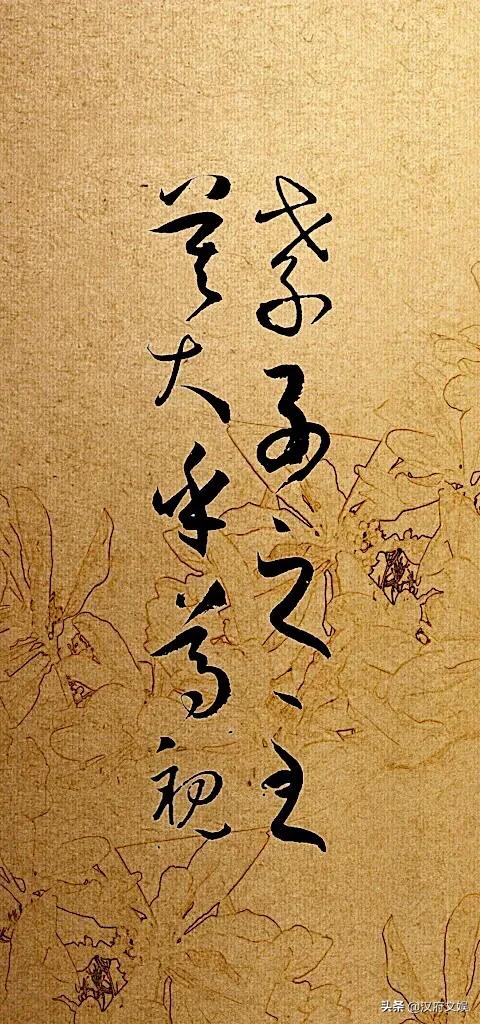 孝子之至
莫大乎尊親
头条 @汉府文娱